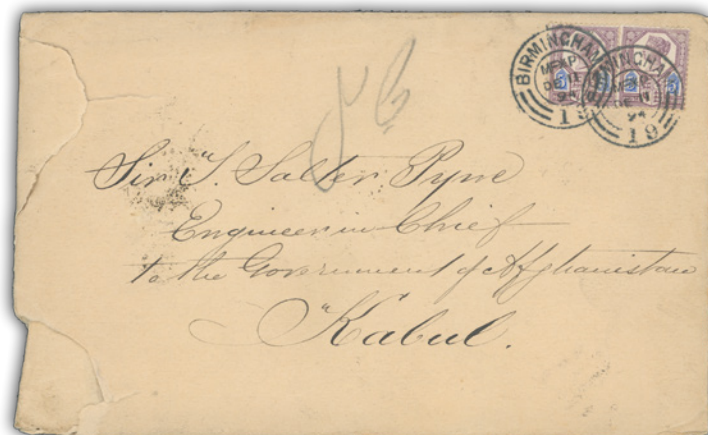 BIRMINGHAM
DE 11
94
19
BIRMINGHAM
DE 11
94
19
Sir T. Salter Pyne
Engineer in Chief
to the Government of Afghanistan
Kabul.